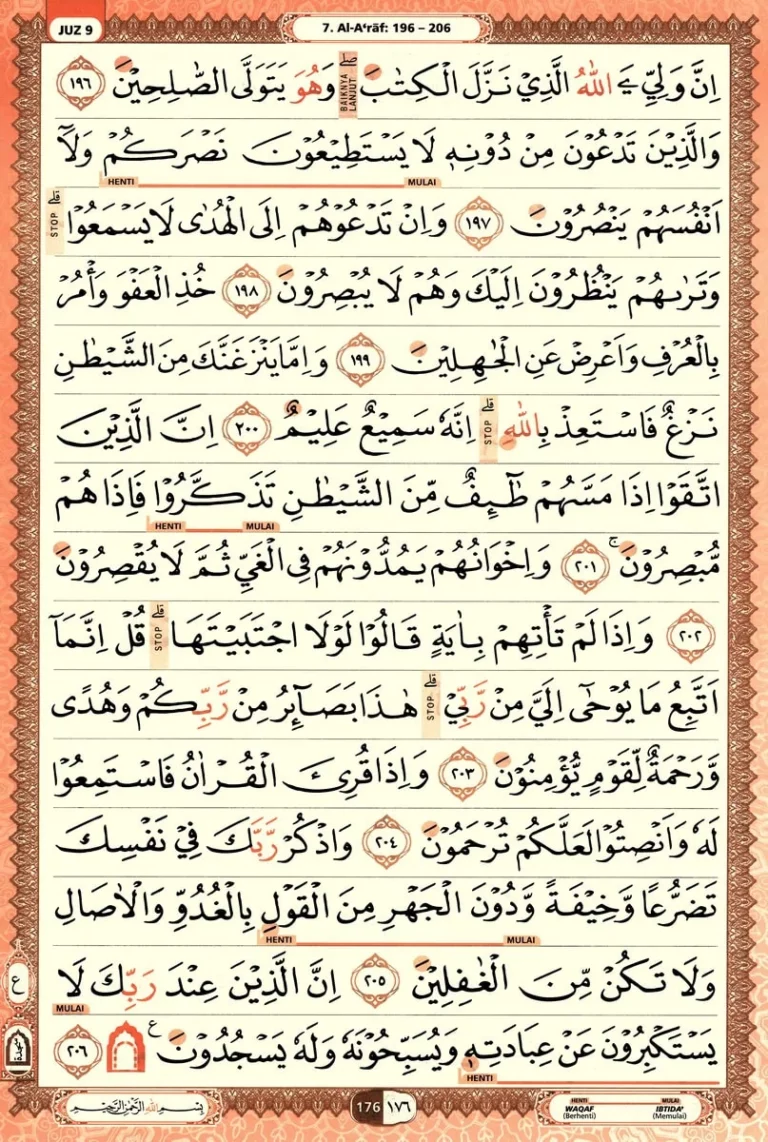 JUZ 9
7. Al-A'rāf: 196 – 206
اِنَّ وَلِيِّ يَ اللّٰهُ الَّذِيْ نَزَّلَ الْكِتٰبَۖ وَهُوَ يَتَوَلَّى الصّٰلِحِيْنَ ١٩٦
BAIKNYA LANJUT
وَالَّذِيْنَ تَدْعُوْنَ مِنْ دُوْنِهٖ لَا يَسْتَطِيْعُوْنَ نَصْرَكُمْ وَلَآ
HENTI MULAI
اَنْفُسَهُمْ يَنْصُرُوْنَ ١٩٧ وَاِنْ تَدْعُوْهُمْ اِلَى الْهُدٰى لَا يَسْمَعُوْاۗ
STOP
وَتَرٰىهُمْ يَنْظُرُوْنَ اِلَيْكَ وَهُمْ لَا يُبْصِرُوْنَ ١٩٨ خُذِ الْعَفْوَ وَأْمُرْ
بِالْعُرْفِ وَاَعْرِضْ عَنِ الْجٰهِلِيْنَ ١٩٩ وَاِمَّا يَنْزَغَنَّكَ مِنَ الشَّيْطٰنِ
نَزْغٌ فَاسْتَعِذْ بِاللّٰهِۗ اِنَّهٗ سَمِيْعٌ عَلِيْمٌ ٢٠٠ اِنَّ الَّذِيْنَ
STOP
اتَّقَوْا اِذَا مَسَّهُمْ طٰۤىِٕفٌ مِّنَ الشَّيْطٰنِ تَذَكَّرُوْا فَاِذَا هُمْ
HENTI MULAI
مُّبْصِرُوْنَۚ ٢٠١ وَاِخْوَانُهُمْ يَمُدُّوْنَهُمْ فِى الْغَيِّ ثُمَّ لَا يُقْصِرُوْنَ
٢٠٢ وَاِذَا لَمْ تَأْتِهِمْ بِاٰيَةٍ قَالُوْا لَوْلَا اجْتَبَيْتَهَاۗ قُلْ اِنَّمَآ
STOP
اَتَّبِعُ مَا يُوْحٰٓى اِلَيَّ مِنْ رَّبِّيْۗ هٰذَا بَصَاۤىِٕرُ مِنْ رَّبِّكُمْ وَهُدًى
STOP
وَّرَحْمَةٌ لِّقَوْمٍ يُّؤْمِنُوْنَ ٢٠٣ وَاِذَا قُرِئَ الْقُرْاٰنُ فَاسْتَمِعُوْا
لَهٗ وَاَنْصِتُوْا لَعَلَّكُمْ تُرْحَمُوْنَ ٢٠٤ وَاذْكُرْ رَّبَّكَ فِيْ نَفْسِكَ
تَضَرُّعًا وَّخِيْفَةً وَّدُوْنَ الْجَهْرِ مِنَ الْقَوْلِ بِالْغُدُوِّ وَالْاٰصَالِ
HENTI MULAI
وَلَا تَكُنْ مِّنَ الْغٰفِلِيْنَ ٢٠٥ اِنَّ الَّذِيْنَ عِنْدَ رَبِّكَ لَا
MULAI
يَسْتَكْبِرُوْنَ عَنْ عِبَادَتِهٖ وَيُسَبِّحُوْنَهٗ وَلَهٗ يَسْجُدُوْنَ ࣖ ٢٠٦
HENTI
ع
سجدة
بِسْمِ اللّٰهِ الرَّحْمٰنِ الرَّحِيْمِ
176 ١٧٦
HENTI
WAQAF
(Berhenti)
MULAI
IBTIDA'
(Memulai)